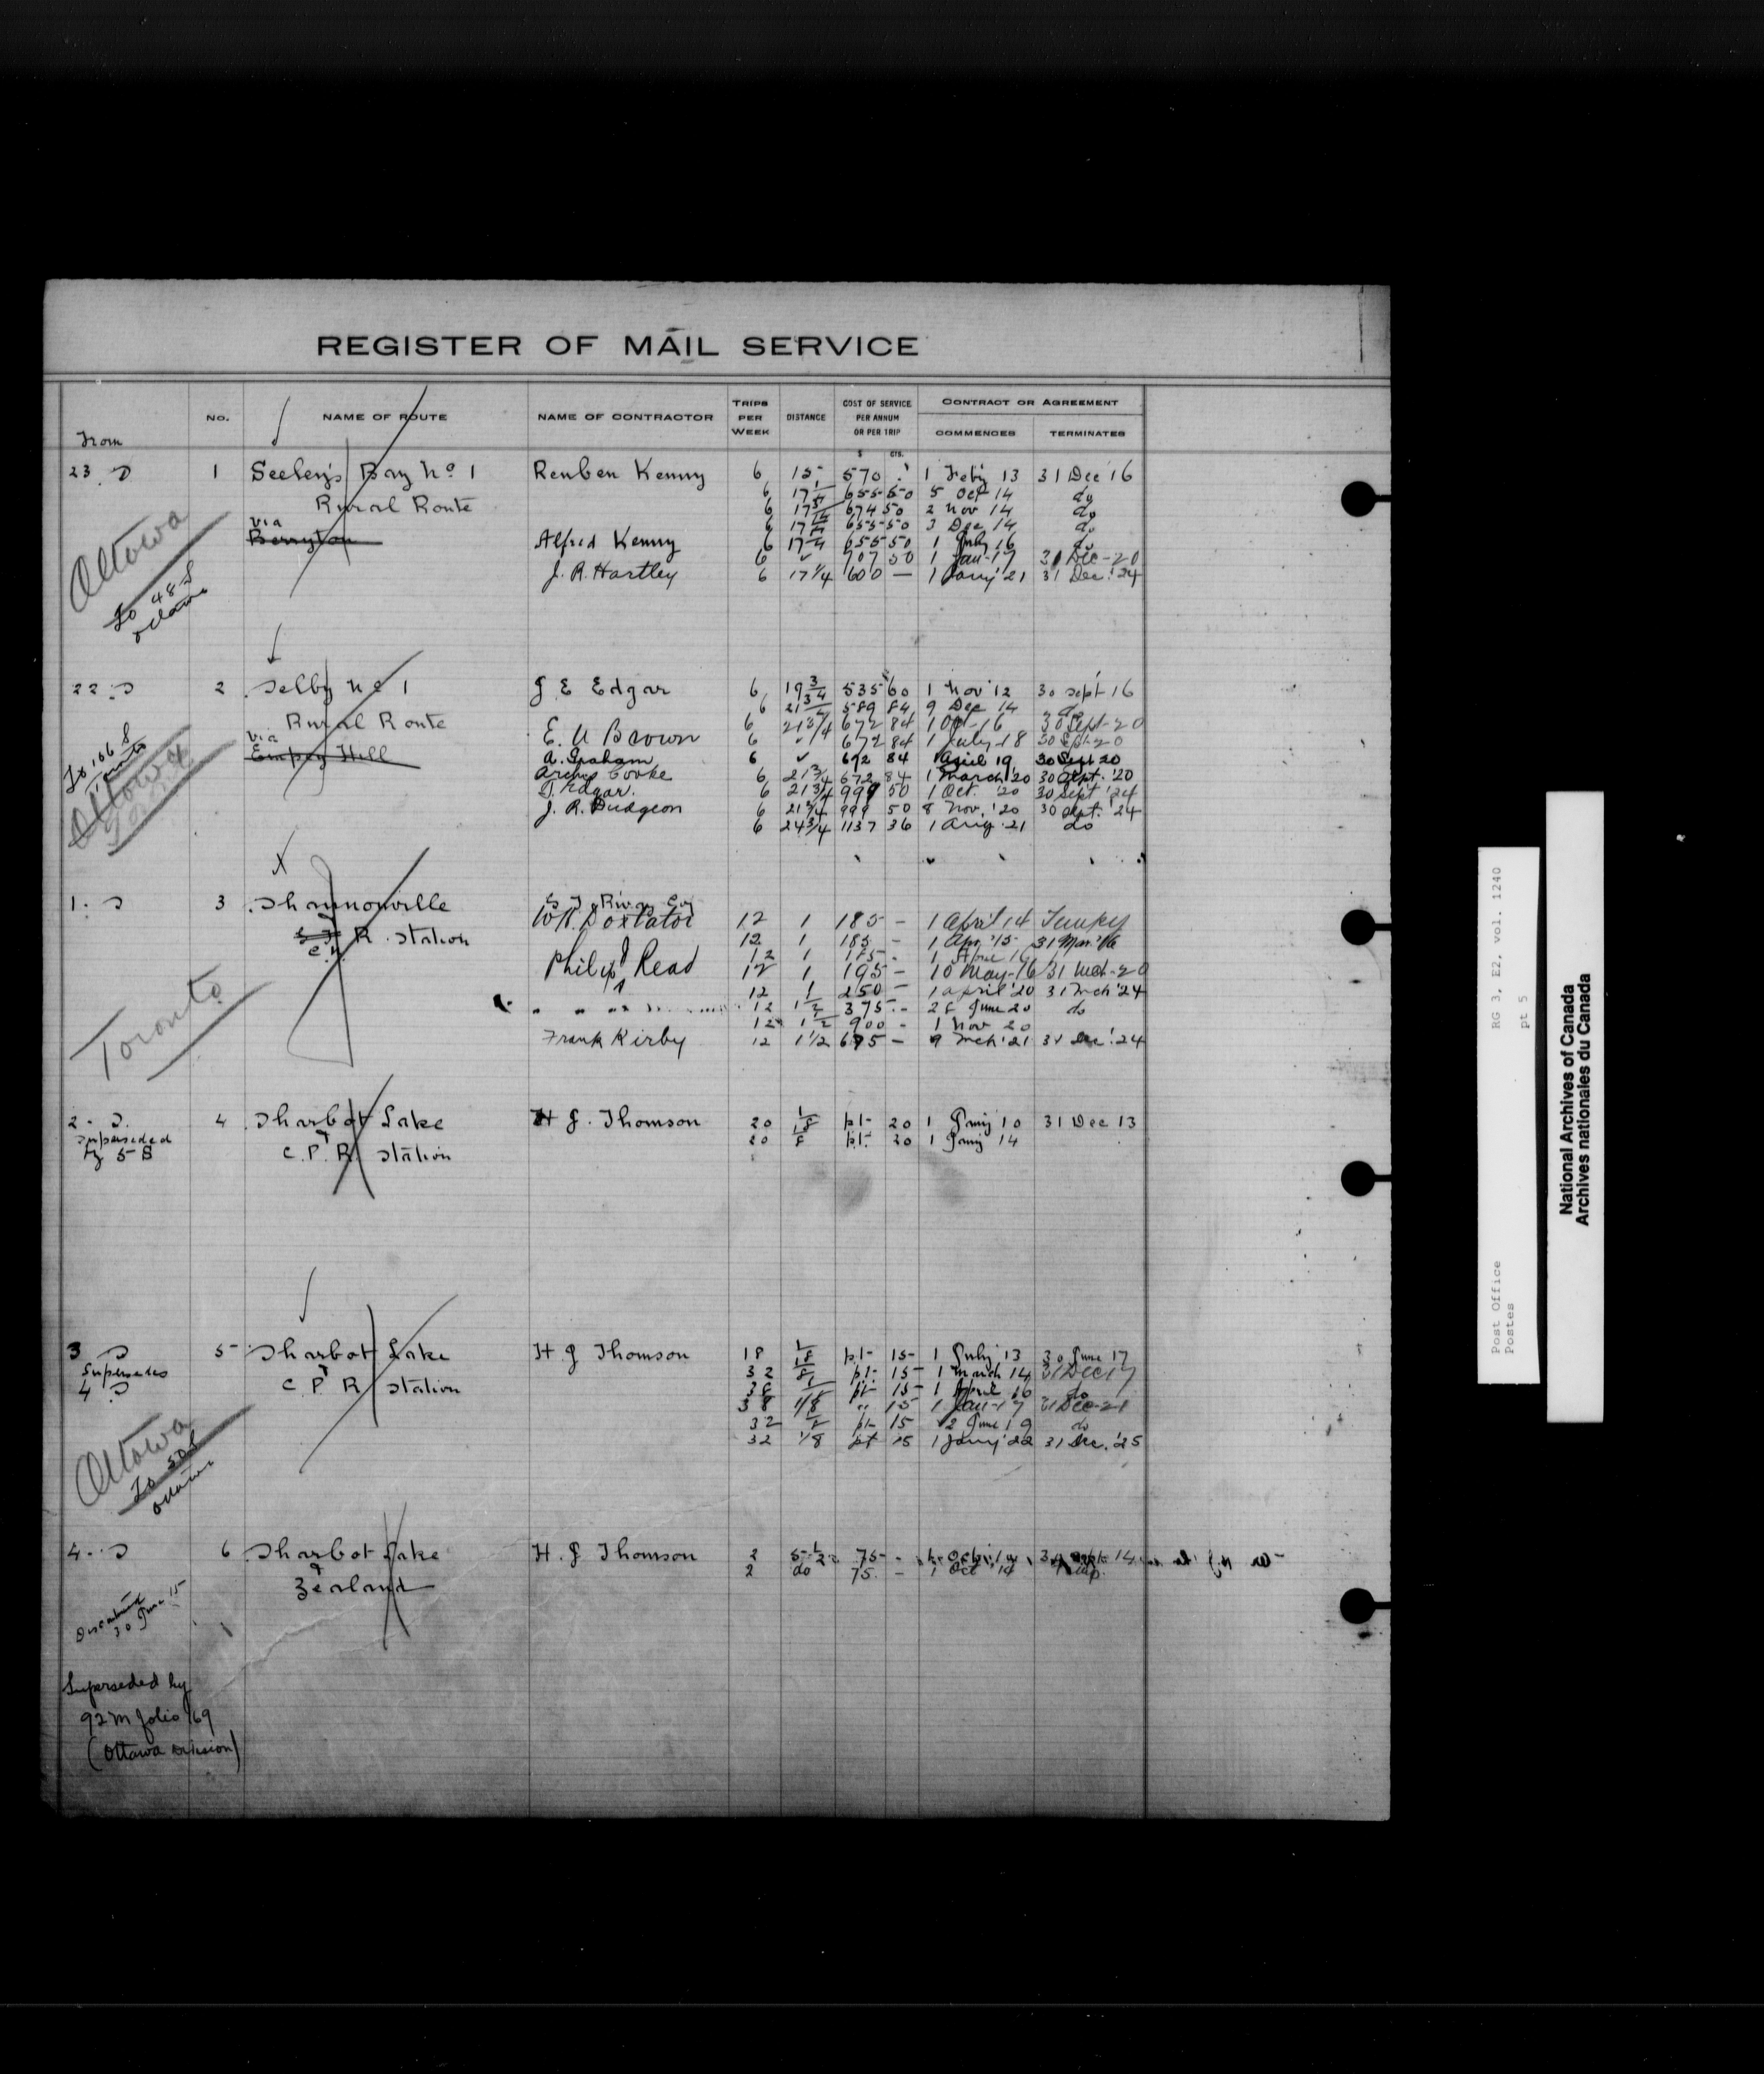 REGISTER OF MAIL SERVICE
From No. NAME OF ROUTE NAME OF CONTRACTOR TRIPS PER WEEK DISTANCE COST OF SERVICE PER ANNUM OR PER TRIP CONTRACT OR AGREEMENT COMMENCES TERMINATES
$ CTS.
23 S 1 Seeley's Bay No 1 Reuben Kenny 6 15 570 1 Feby 13 31 Dec 16
Rural Route 6 17 1/4 655 50 5 Oct 14 do
6 674 50 2 Nov 14 do
via 6 17 1/4 655 50 3 Dec 14 do
Berryton Alfred Kenny 6 17 1/4 655 50 1 July 16 do
6 ✓ 907 50 1 Jan-17 31 Dec-20
J. R. Hartley 6 17 1/4 600 — 1 Jany '21 31 Dec. '24
Ottawa
To 48 S
Ottawa
22 S 2 Selby No 1 J E Edgar 6 19 3/4 535 60 1 Nov 12 30 Sept 16
6 21 3/4 589 84 9 Dec 14 do
Rural Route 6 21 3/4 672 84 1 Oct-16 30 Sept-20
via E. U Brown 6 ✓ 672 84 1 July-18 30 Sept-20
Empey Hill A. Graham 6 ✓ 672 84 1 April 19 30 Sept 20
Archie Cooke 6 21 3/4 672 84 1 March '20 30 Sept. '20
T. Edgar. 6 21 3/4 999 50 1 Oct. '20 30 Sept '24
J. R. Dudgeon 6 21 3/4 999 50 8 Nov. '20 30 Sept. '24
6 24 3/4 1137 36 1 Aug. 21 do
To 106 S
Toronto
Ottawa
1. S 3 Shannonville G T Rway Co
W.R. Doxtator 12 1 185 — 1 April 14 Tempy
G T R. Station 12 1 185 — 1 Apr. '15 31 Mar. '16
C. N. 12 1 185 - 1 April 16
Philip J Read 12 1 195 — 10 May-16 31 Mch-20
12 1 250 — 1 April '20 31 Mch '24
" " " 12 1 1/2 375 - 28 June 20 do
12 1 1/2 900 - 1 Nov 20
Frank Kirby 12 1 1/2 675 — 9 Mch '21 31 Dec. '24
Toronto
2 - S. 4 Sharbot Lake H J. Thomson 20 1/8 pt- 20 1 Jany 10 31 Dec 13
Superseded & 20 1/8 pt- 20 1 Jany 14
by 5 S C. P. R. Station
3 S 5 Sharbot Lake H. J Thomson 18 1/8 pt- 15 1 July 13 30 June 17
Supersedes & 32 1/8 pt- 15 1 March 14 31 Dec 17
4 S C P R Station 38 1/8 pt- 15 1 April 16 do
38 1/8 " 15 1 Jan-17 31 Dec-21
32 1/8 pt- 15 2 June 19 do
32 1/8 pt 15 1 Jany '22 31 Dec. '25
Ottawa
To 50 S
Ottawa
4 - S 6 Sharbot Lake H. J Thomson 2 5 1/2 75 - 1 Oct 30 Sept 14
& 2 do 75. - 1 Oct 14
Zealand
Discontinued
30 June 15
Superseded by
92 M folio 169
(Ottawa Division)
Post Office RG 3, E2, vol. 1240
Postes pt 5
National Archives of Canada
Archives nationales du Canada